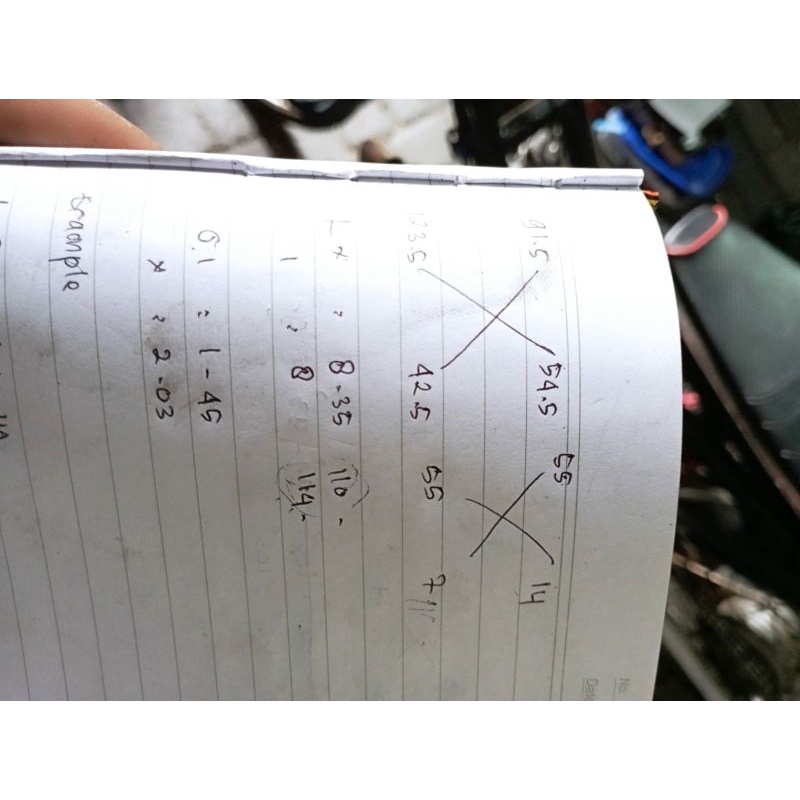 No.
Date
91.5 54.5 55 14
123.5 42.5 55 7
L x : 8.35 110 -
1 : 8 114 -
: 1-45
x : 2-03